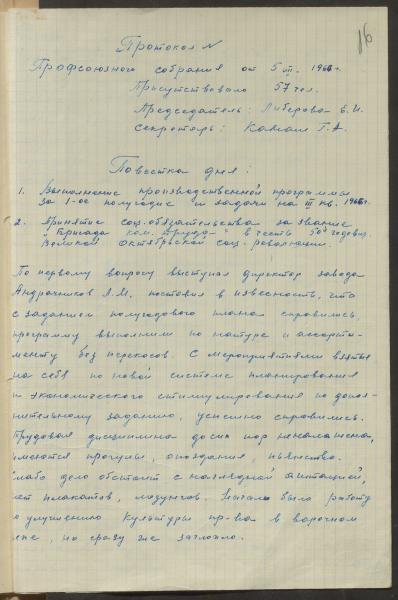 16
Протокол №
Профсоюзного собрания от 5/VII. 1966г.
Присутствовало 57 чел.
Председатель: Либерова Е.И.
Секретарь: Г.А.
Повестка дня:
1. Выполнение производственной программы
за 1-ое полугодие и задачи на III кв. 1966г.
2. Принятие соц. обязательства за звание
"Бригада ком. труда" в честь 50 годовщ.
Великой Октябрьской соц. революции.
По первому вопросу выступил директор завода
А.М. поставил в известность, что
с заданием полугодового плана справились,
программу выполнили по натуре и ассорти-
менту без перекосов. С мероприятиями взятые
на себя по новой системе планирования
и экономического стимулирования по допол-
нительному заданию, успешно справились.
Трудовая дисциплина до сих пор неналажена,
имеются прогулы, опоздания, пьянство.
лабо дело обстоит с наглядной агитацией,
ет плакатов, лозунгов. Начали было работу
о улучшению культуры пр-ва в варочном
ехе, но сразу же заглохло.